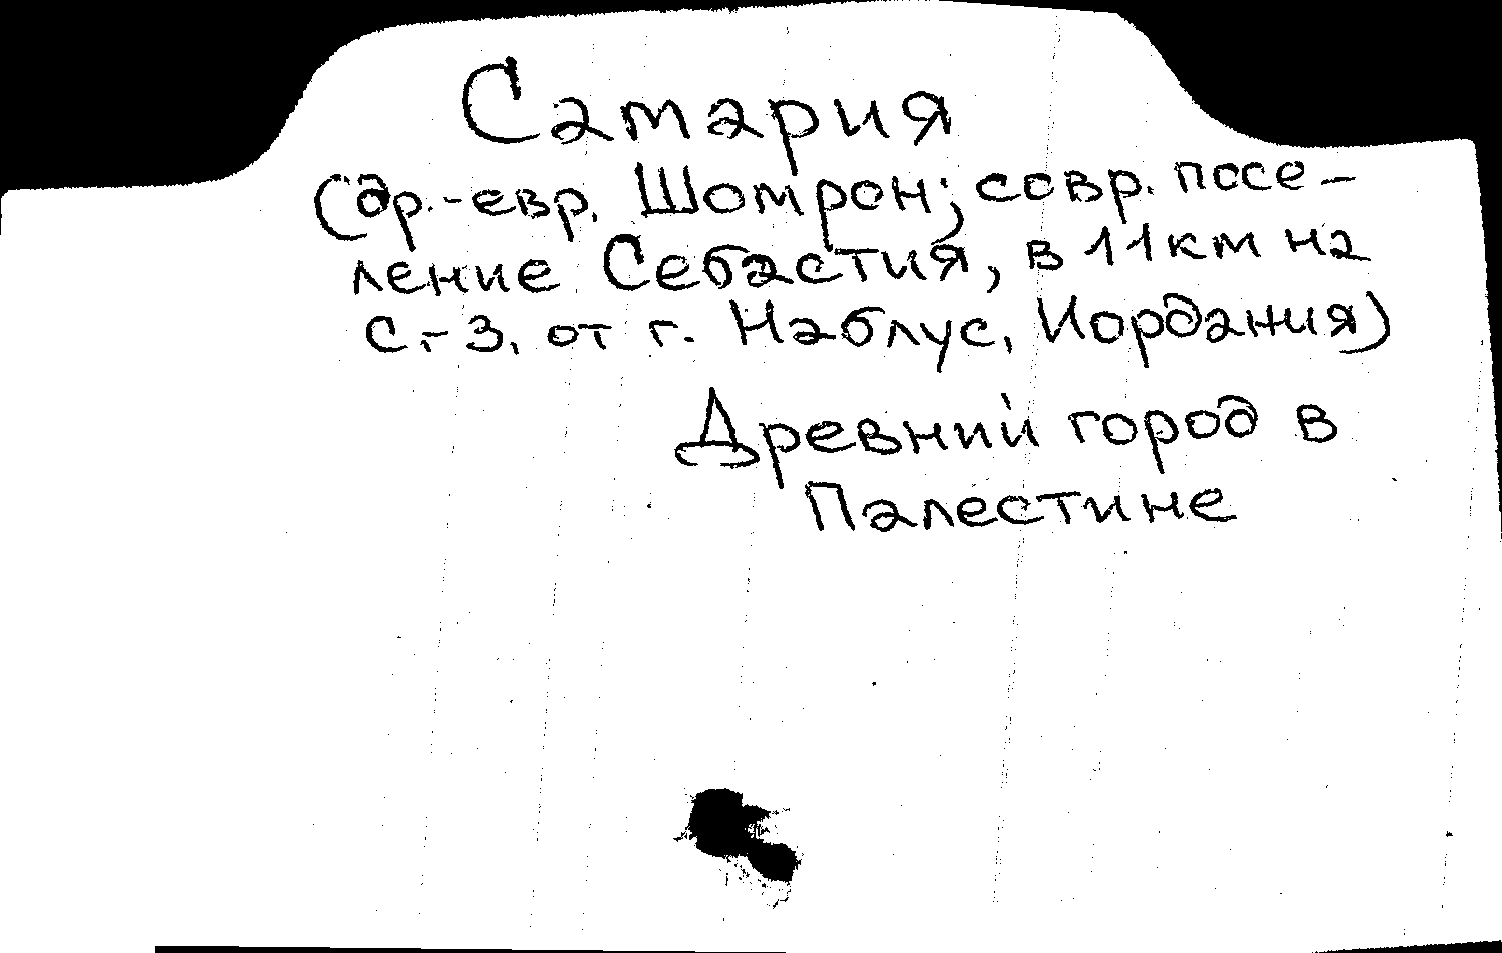 Самария
(др.-евр. Шомрон; совр. посе-
ление Себастия, в 11 км на
С.-З. от г. Наблус, Иордания)
Древний город в
Палестине